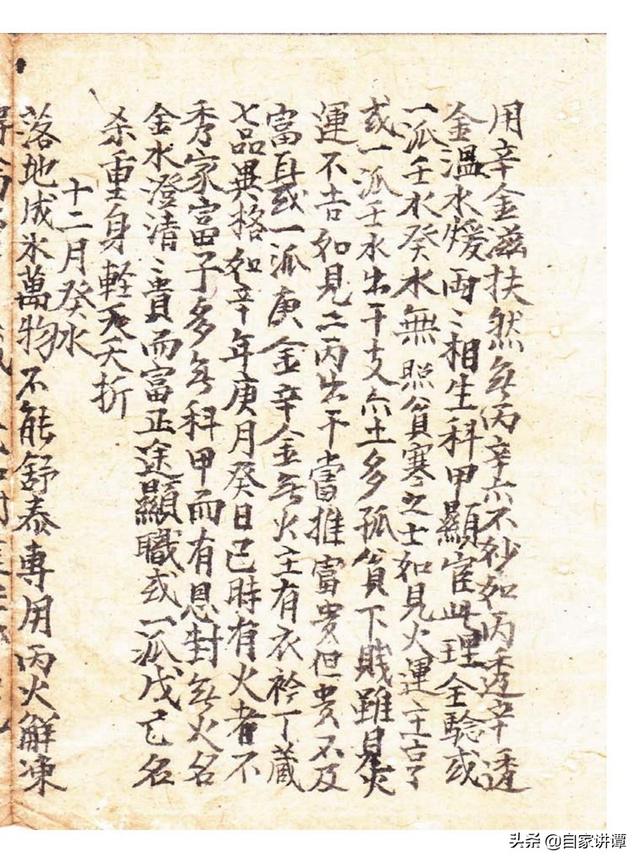 用辛金滋扶然无丙辛亦不妙如丙透辛透
金温水煖両〻相生科甲顯宦此理全驗或
一派壬水癸水無照貧寒之士如見火運主吉了
或一派壬水出干支亦土多孤貧下賎雖見火
運不吉如見二丙出干當推富贵但贵不及
富耳或一派庚金辛金无火主有衣衿丁藏
七品異格如辛年庚月癸日巳時有火者不
秀家富子多无科甲而有恩封无火名
金水澄清〻貴而富正途顯職或一派戊己名
杀重身軽夭折
十二月癸水
落地成氷萬物不能舒泰専用丙火解凍
头条 @自家讲谭